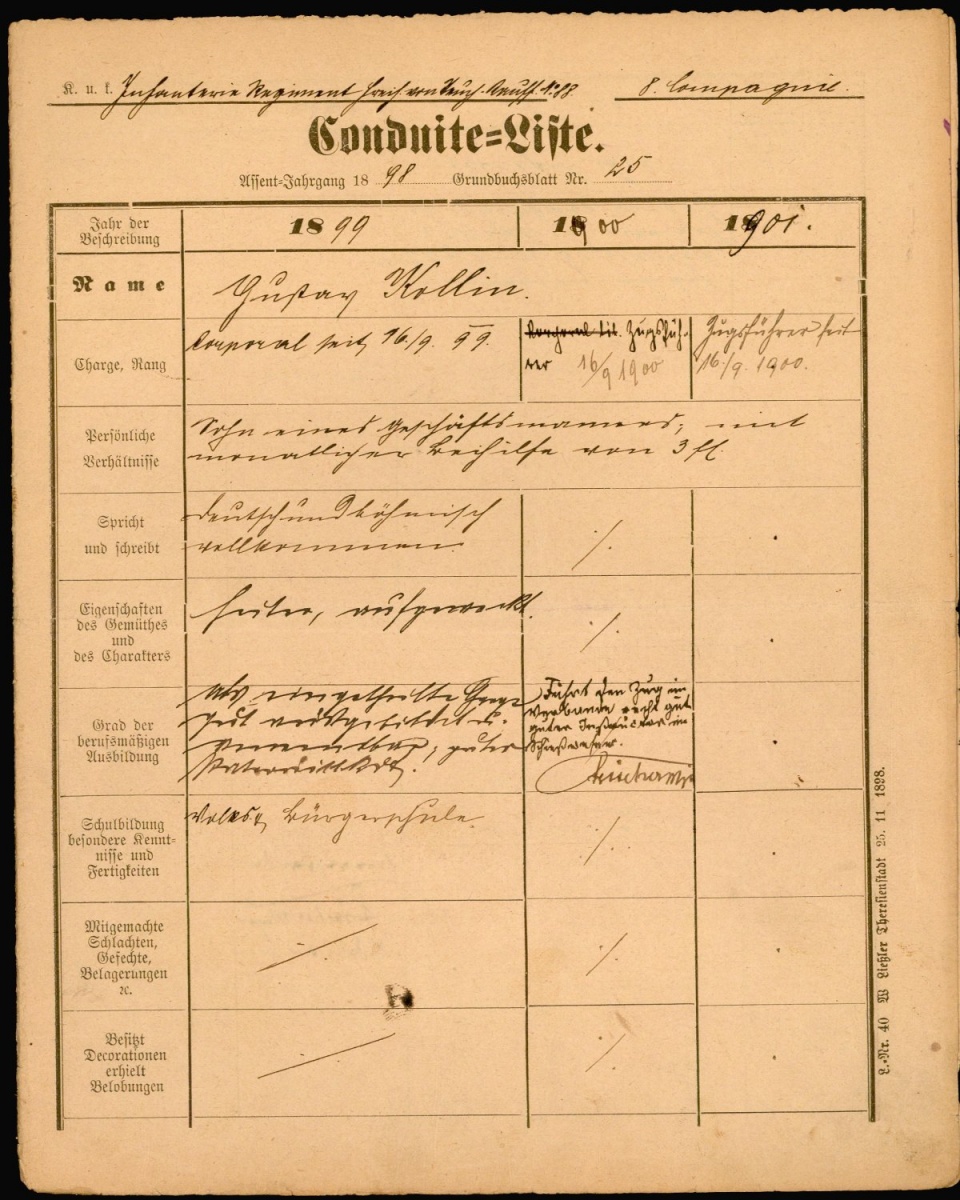 K. u. k. Infanterie Regiment Freih. von No 88 8. Compagnie.
Conduite=Liste.
Assent=Jahrgang 18 98 Grundbuchsblatt Nr. 25
Jahr der Beschreibung 1899 1900 1901.
Name
Gustav Kollin.
Charge, Rang
Corporal seit 16/9. 99.
Corporal tit. Zugsfüh-
rer 16/9 1900
Zugsführer seit
16./9. 1900.
Persönliche
Verhältnisse
Sohn eines Geschäftsmannes, mit
monatlicher Beihilfe von 3 fl.
Spricht
und schreibt
Deutsch und böhmisch
vollkommen.
·/.
Eigenschaften
des Gemüthes
und
des Charakters
heiter, aufgeweckt.
·/.
Grad der
berufsmäßigen
Ausbildung
Als eingetheilte Charge
gut ausgebildet u.
verwendbar; guter
Führt den Zug im
Verbande recht gut
guter Instructor im
Schießwesen.
Schulbildung
besondere Kennt-
nisse und
Fertigkeiten
Volks, Bürgerschule
·/.
Mitgemachte
Schlachten,
Gefechte,
Belagerungen
ꝛc.
·/.
·/.
Besitzt
Decorationen
erhielt
Belobungen
·/.
·/.
L.-Nr. 40 W Liehler Theresienstadt 25. 11 1898.